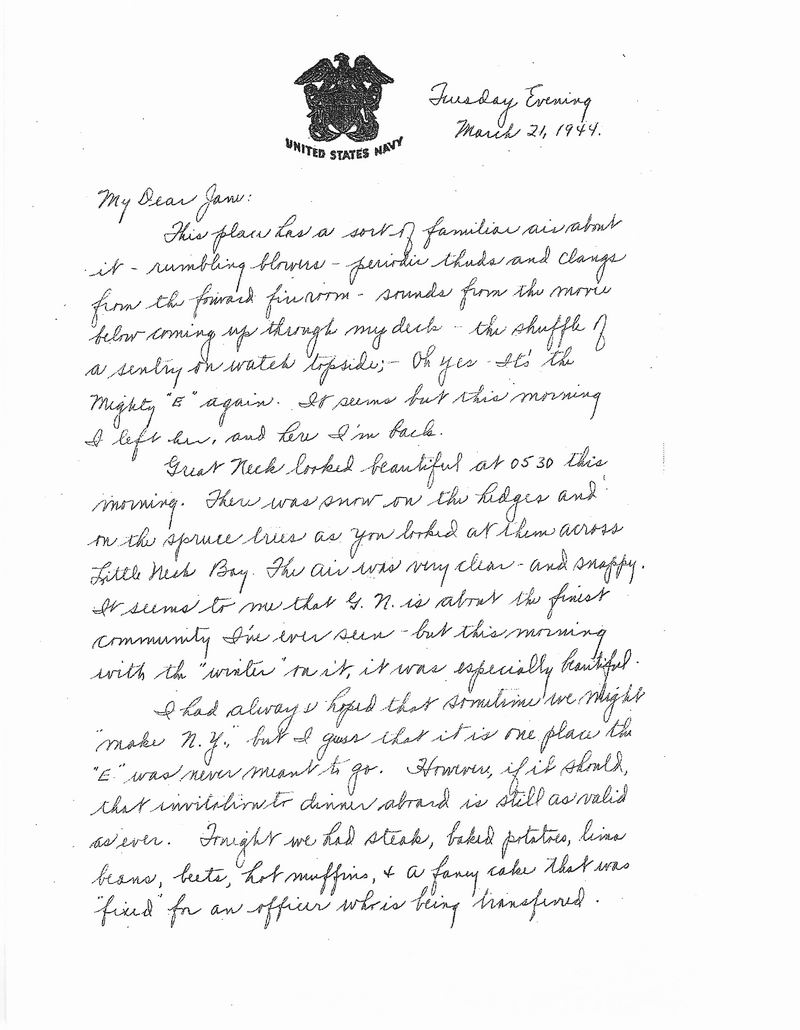 UNITED STATES NAVY
Tuesday Evening
March 21, 1944.
My Dear Jane:
This place has a sort of familiar air about
it - rumbling blowers - periodic thuds and clangs
from the forward fireroom - sounds from the movie
below coming up through my deck - the shuffle of
a sentry on watch topside; - Oh yes - It's the
Mighty "E" again. It seems but this morning
I left her, and here I'm back.
Great Neck looked beautiful at 0530 this
morning. There was snow on the hedges and
on the spruce trees as you looked at them across
Little Neck Bay. The air was very clear - and snappy.
It seems to me that G. N. is about the finest
community I've ever seen - but this morning
with the "winter" on it, it was especially beautiful.
I had always hoped that sometime we might
"make N.Y.," but I guess that it is one place the
"E" was never meant to go. However, if it should,
that invitation to dinner aboard is still as valid
as ever. Tonight we had steak, baked potatoes, lima
beans, beets, hot muffins, & a fancy cake that was
"fixed" for an officer who is being transferred.